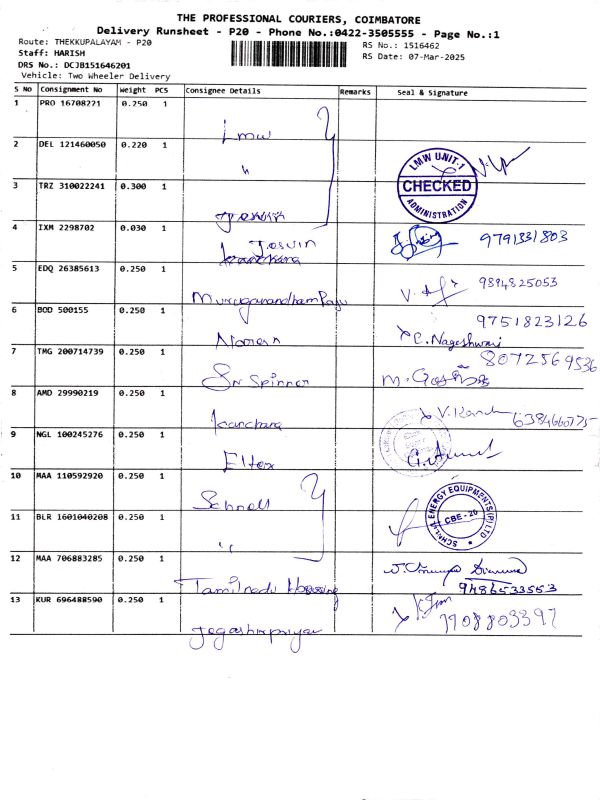 THE PROFESSIONAL COURIERS, COIMBATORE
Delivery Runsheet - P20 - Phone No.:0422-3505555 - Page No.:1
Route: THEKKUPALAYAM - P20
Staff: HARISH
DRS No.: DCJB151646201
Vehicle: Two Wheeler Delivery
RS No.: 1516462
RS Date: 07-Mar-2025
S No Consignment No Weight PCS Consignee Details Remarks Seal & Signature
1 PRO 16708221 0.250 1
Lmw
2 DEL 121460050 0.220 1
"
LMW UNIT-1
CHECKED
ADMINISTRATION
3 TRZ 310022241 0.300 1
4 IXM 2298702 0.030 1
Josvin
9791331803
5 EDQ 26385613 0.250 1
Muruganandham Raju
9894825053
6 BOD 500155 0.250 1
Naren
9751823126
C. Nageshwari
7 TMG 200714739 0.250 1
Sri Spinner
8072569536
8 AMD 29990219 0.250 1
Kanchana
6384660775
9 NGL 100245276 0.250 1
Eltex
10 MAA 110592920 0.250 1
Schnell
SCHNELL ENERGY EQUIPMENTS(P)LTD
CBE-20
11 BLR 1601040208 0.250 1
"
12 MAA 706883285 0.250 1
Tamilnadu Housing
9486533553
13 KUR 696488590 0.250 1
Jegashripriya
7708803397